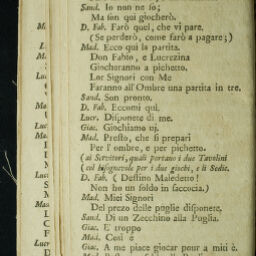 Sand. Io non ne so;
Ma son qui giocherò.
D. Fab. Farò quel, che vi pare.
(Se perderò, come farò a pagare;)
Mad. Ecco qui la partita.
Don Fabio, e Lucrezina
Giocheranno a pichetto.
Lor Signori con Me
Faranno all'Ombre una partita in tre.
Sand. Son pronto.
D. Fab. Eccomi quì.
Lucr. Disponete di me.
Giac. Giochiamo uj.
Mad. Presto, che si prepari
Per l'ombre, e per pichetto.
(ai Servitori, quali portano i due Tavolini
(col bisognevole per i due giochi, e le Sedie.
D. Fab. (Destino Maledetto!
Non ho un soldo in saccocia.)
Mad. Miei Signori
Del prezzo dalle puglie disponete.
Sand. Di un Zecchino alla Puglia.
Giac. E' troppo
Mad. Così è
Giac. A me piace giocar pour a miti è.